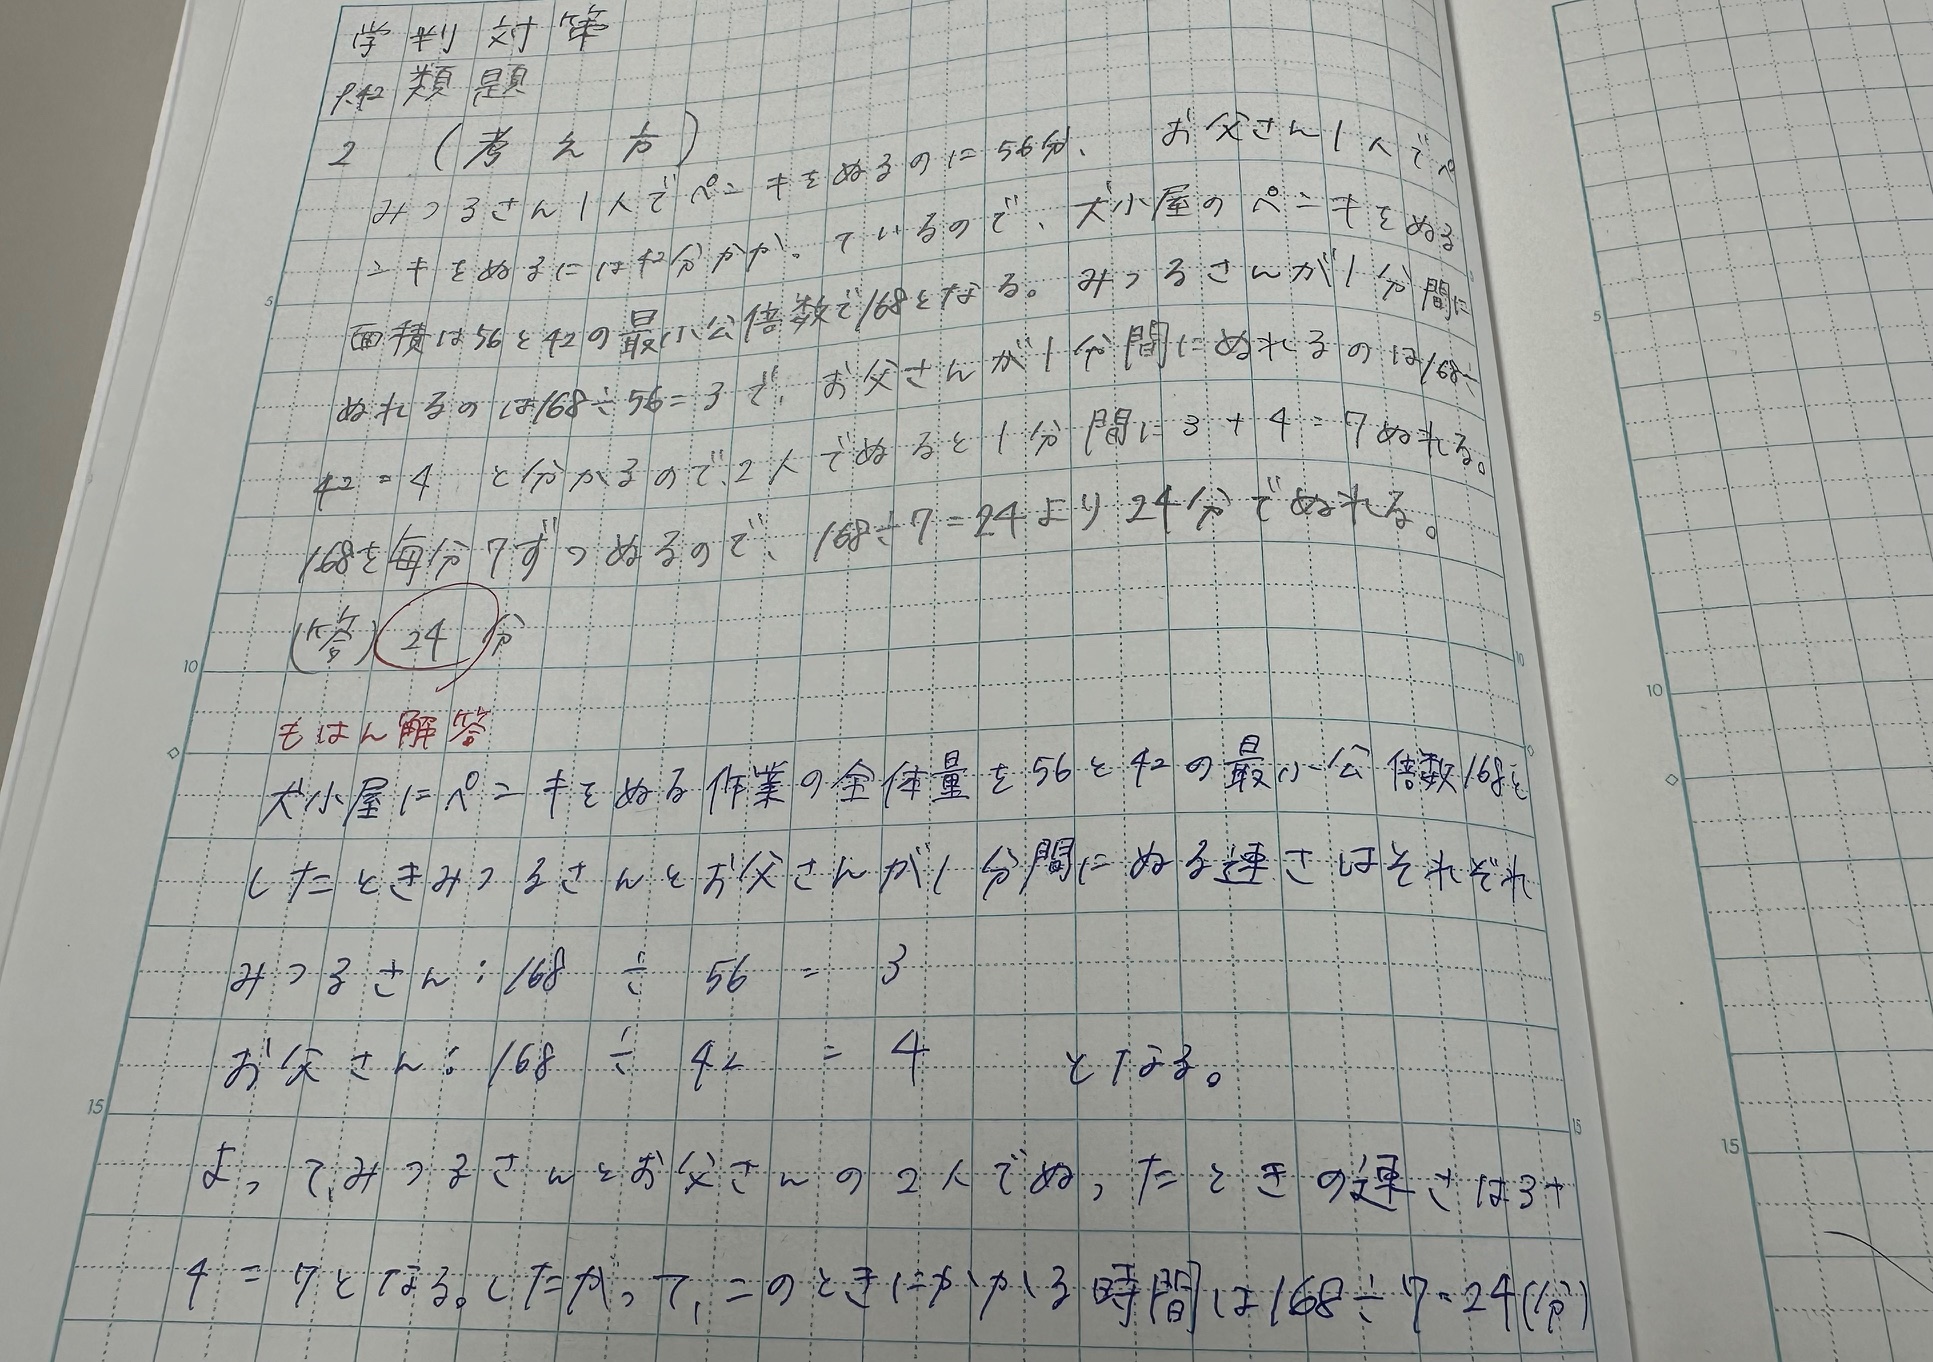 学判対策
P.42 類題
2 (考え方)
みつるさん1人でペンキをぬるのに56分、お父さん1人でペ
ンキをぬるには42分かかっているので、犬小屋のペンキをぬる
面積は56と42の最小公倍数で168となる。みつるさんが1分間に
ぬれるのは168÷56=3で、お父さんが1分間にぬれるのは168÷
42=4 と分かるので、2人でぬると1分間に3+4=7ぬれる。
168を毎分7ずつぬるので、168÷7=24より24分でぬれる。
(答) 24 分
もはん解答
犬小屋にペンキをぬる作業の全体量を56と42の最小公倍数168と
したときみつるさんとお父さんが1分間にぬる速さはそれぞれ
みつるさん:168÷56=3
お父さん:168÷42=4 となる。
よって、みつるさんとお父さんの2人でぬったときの速さは3+
4=7となる。したがって、このときにかかる時間は168÷7=24(分)
5
10
15
5
10
15
10
15